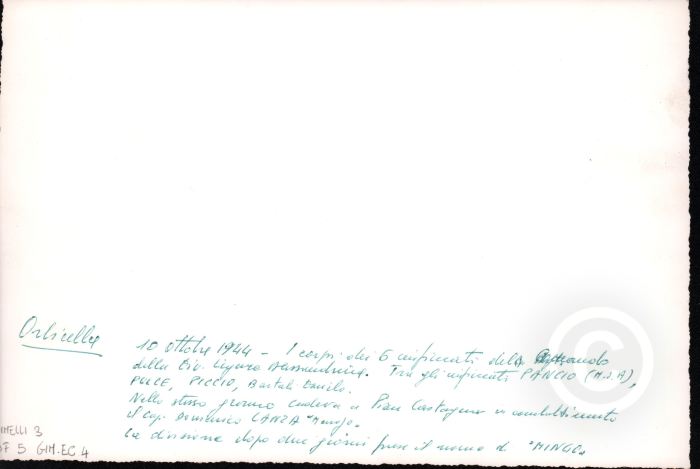 Olbicella
10 ottobre 1944 - I corpi dei 6 impiccati del Comando
della Div. Liguria Alessandria. Tra gli impiccati PANCIO (M.S.A),
PULCE, PICCIO, Bartali Danilo.
Nello stesso giorno cadeva a Pian Castagna in combattimento
il cap. Domenico LANZA "Mingo".
La divisione dopo due giorni prese il nome di "MINGO"
NELLI 3
F 5 GIM.EC 4
©